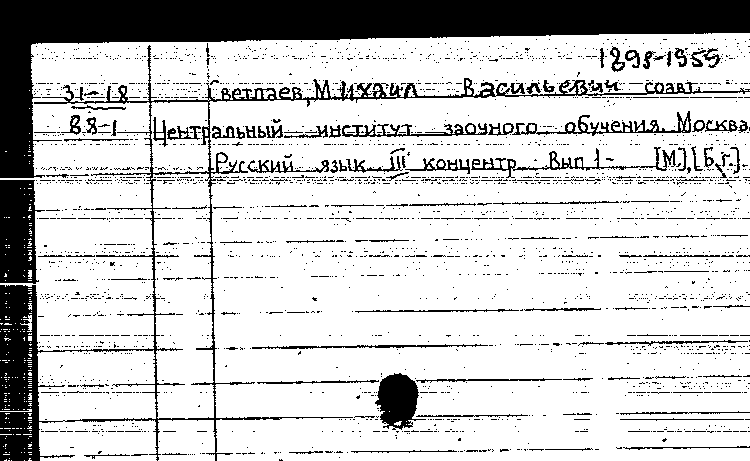 1898-1955
31-18 Светлаев, Михаил Васильевич соавт.
88-1 Центральный институт заочного обучения. Москва.
Русский язык III концентр Вып. 1- [М.], [Б.г.].